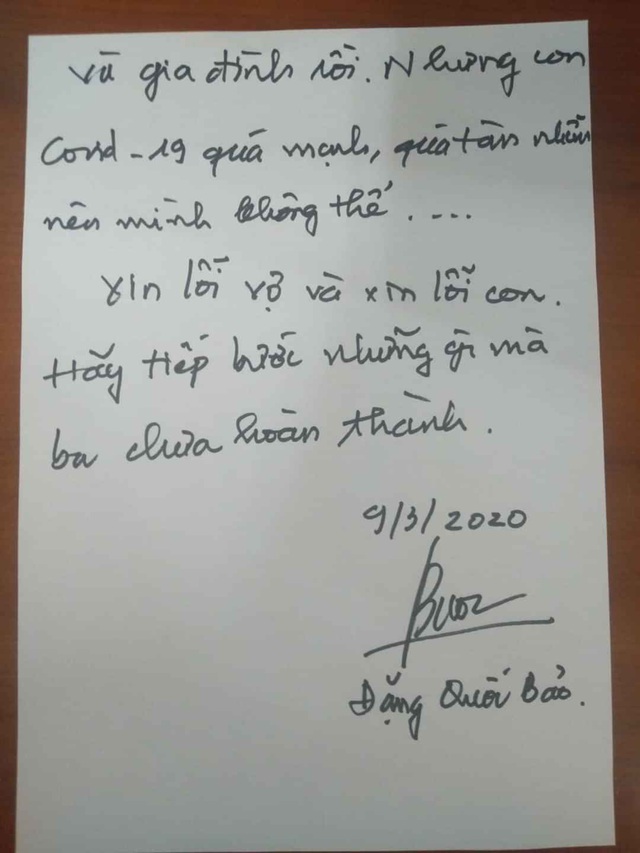 và gia đình rồi. Nhưng con
Covid-19 quá mạnh, quá tàn nhẫn
nên mình không thể.....
xin lỗi vợ và xin lỗi con.
Hãy tiếp bước những gì mà
ba chưa hoàn thành.
9/3/2020
Đặng Quốc Bảo.